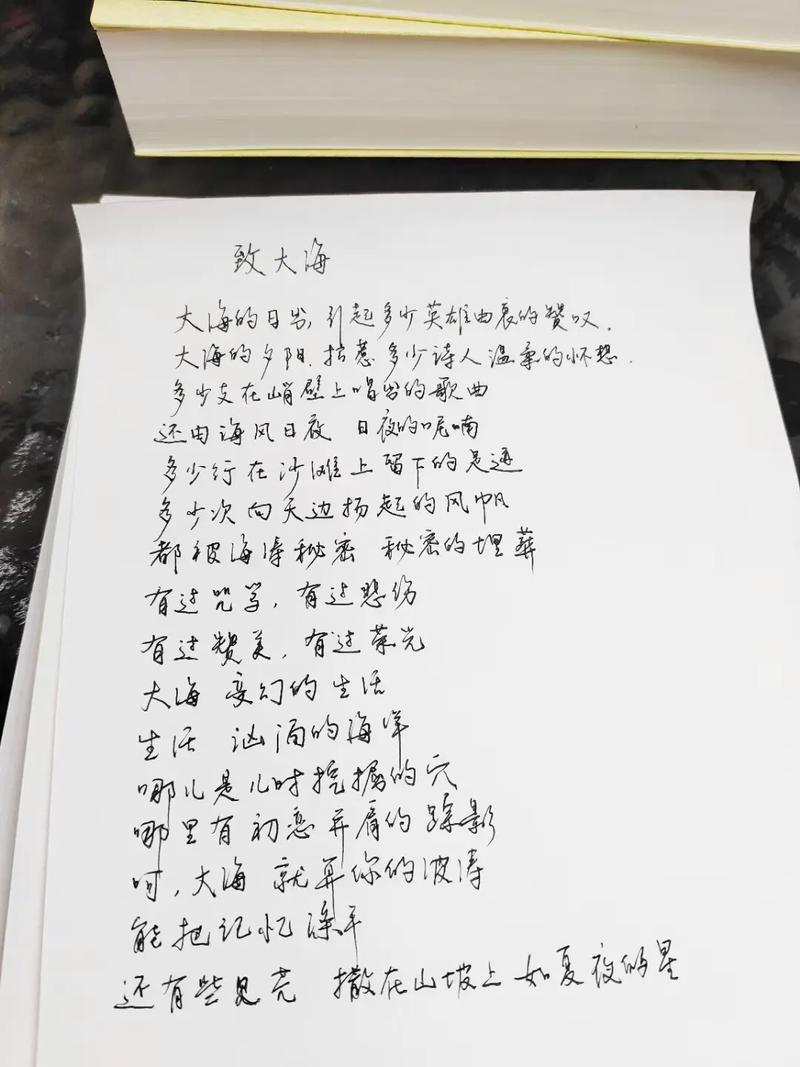 致大海
大海的日出，引起多少英雄由衷的赞叹.
大海的夕阳.招惹多少诗人温柔的怀想.
多少支在峭壁上唱出的歌曲
还由海风日夜 日夜的呢喃
多少行在沙滩上留下的足迹
多少次向天边扬起的风帆
都被海涛秘密 秘密的埋葬
有过咒骂，有过悲伤
有过赞美，有过荣光
大海 变幻的生活
生活 汹涌的海洋
哪儿是儿时挖掘的穴
哪里有初恋并肩的踪影
呵，大海 就算你的波涛
能把记忆涤平
还有些贝壳 撒在山坡上 如夏夜的星